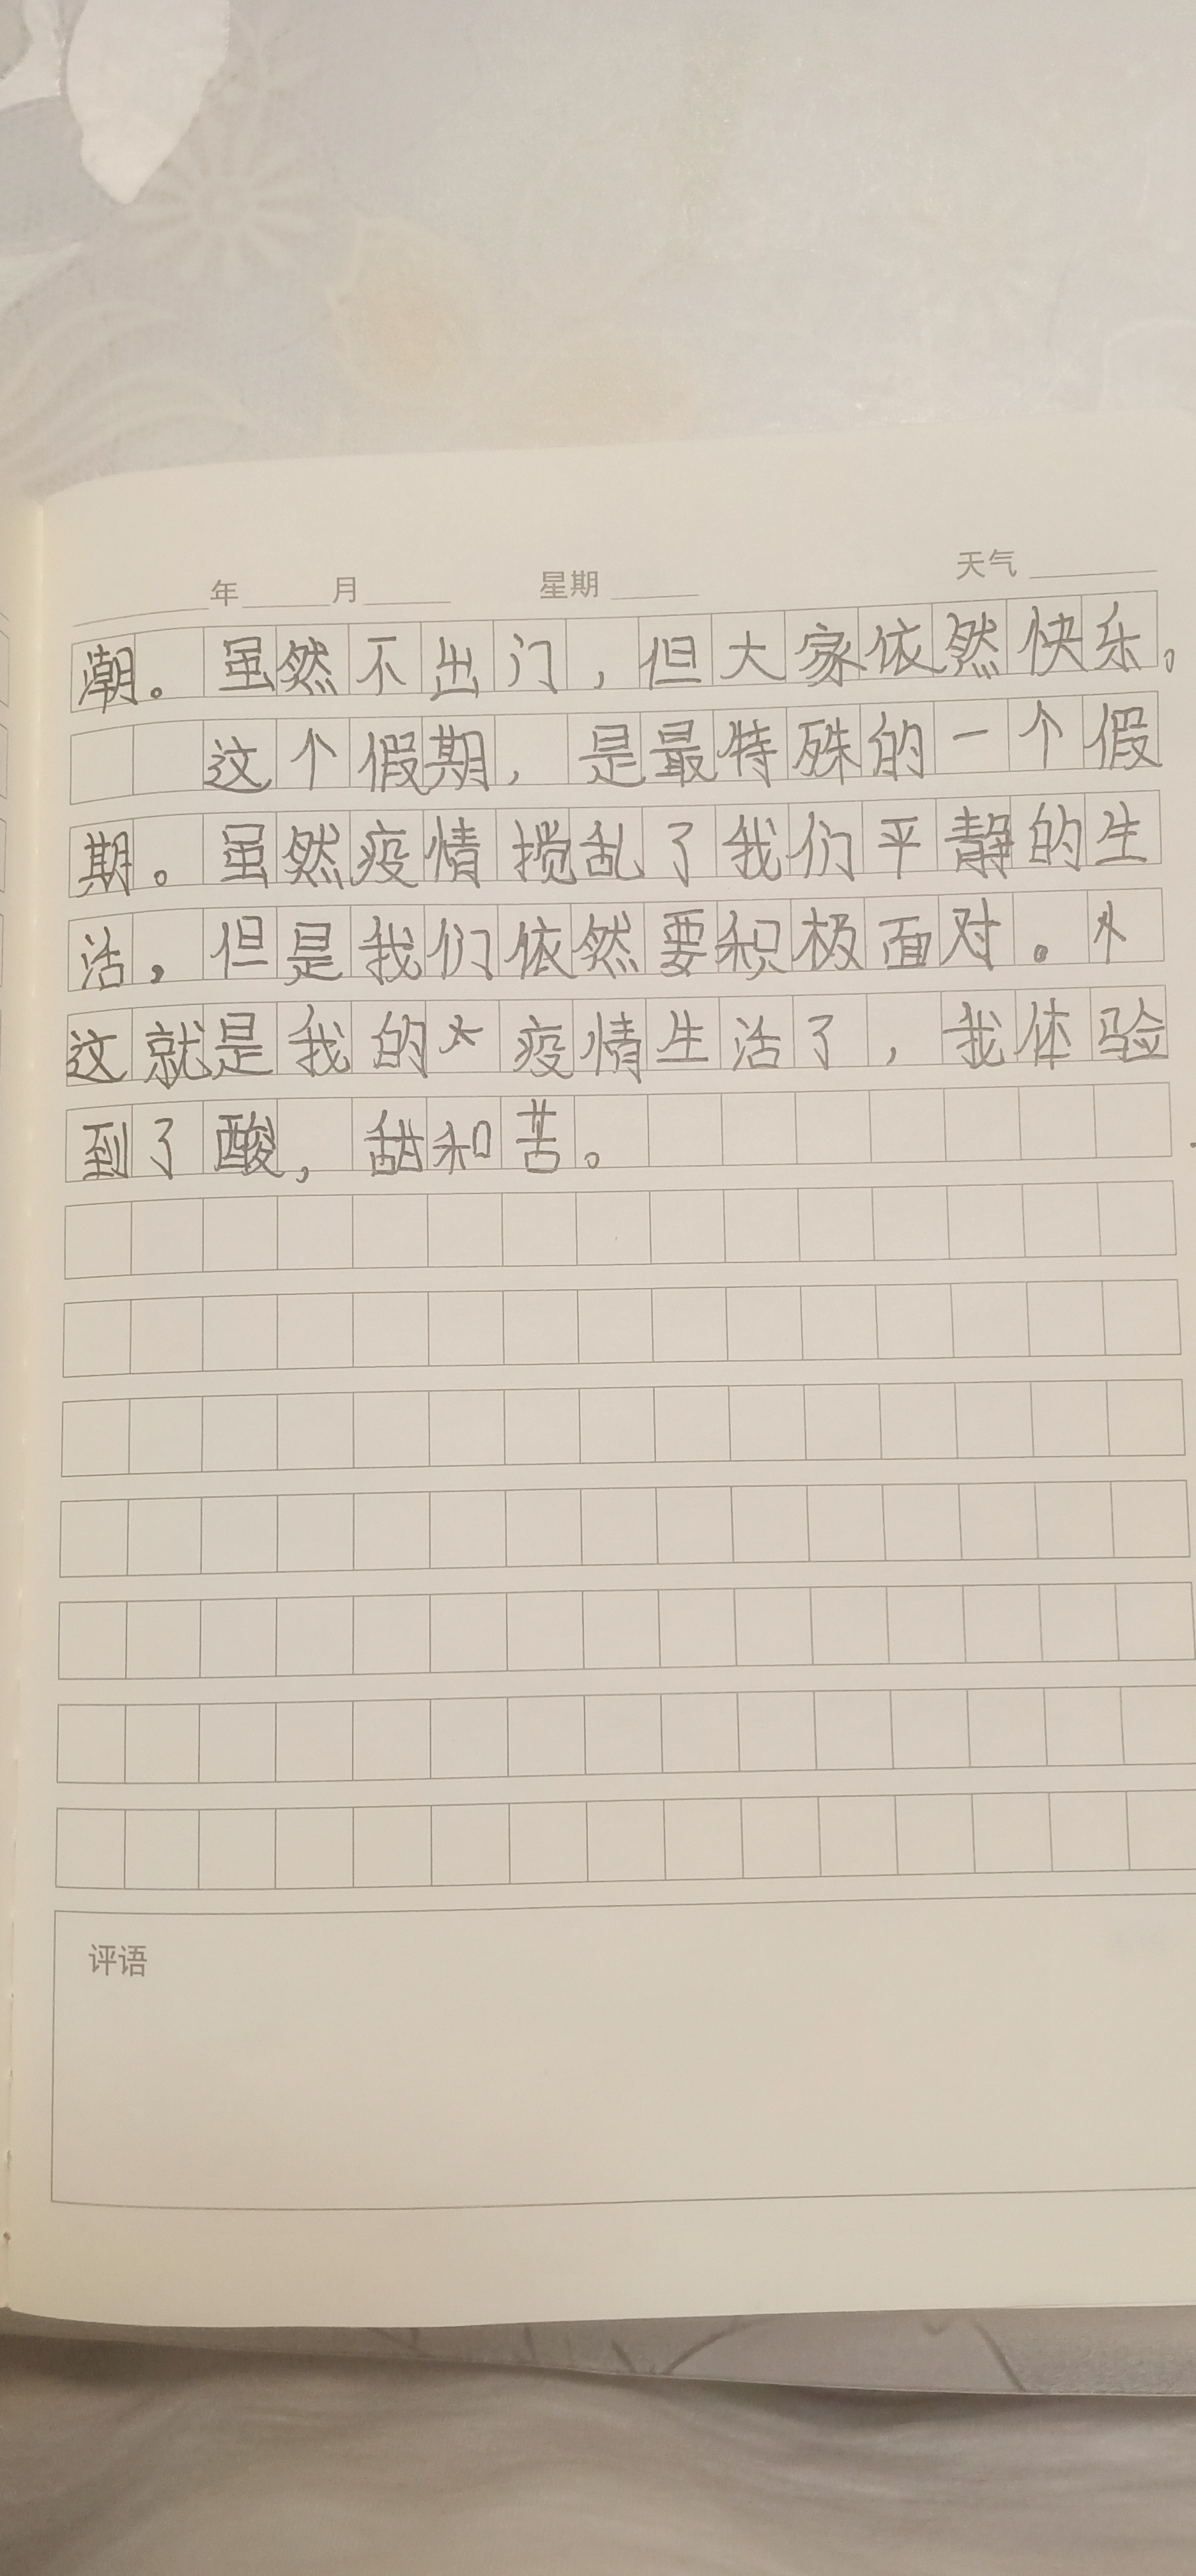 年 月 星期 天气
潮。虽然不出门，但大家依然快乐。
这个假期，是最特殊的一个假
期。虽然疫情搅乱了我们平静的生
活，但是我们依然要积极面对。
这就是我的疫情生活了，我体验
到了酸，甜和苦。
评语